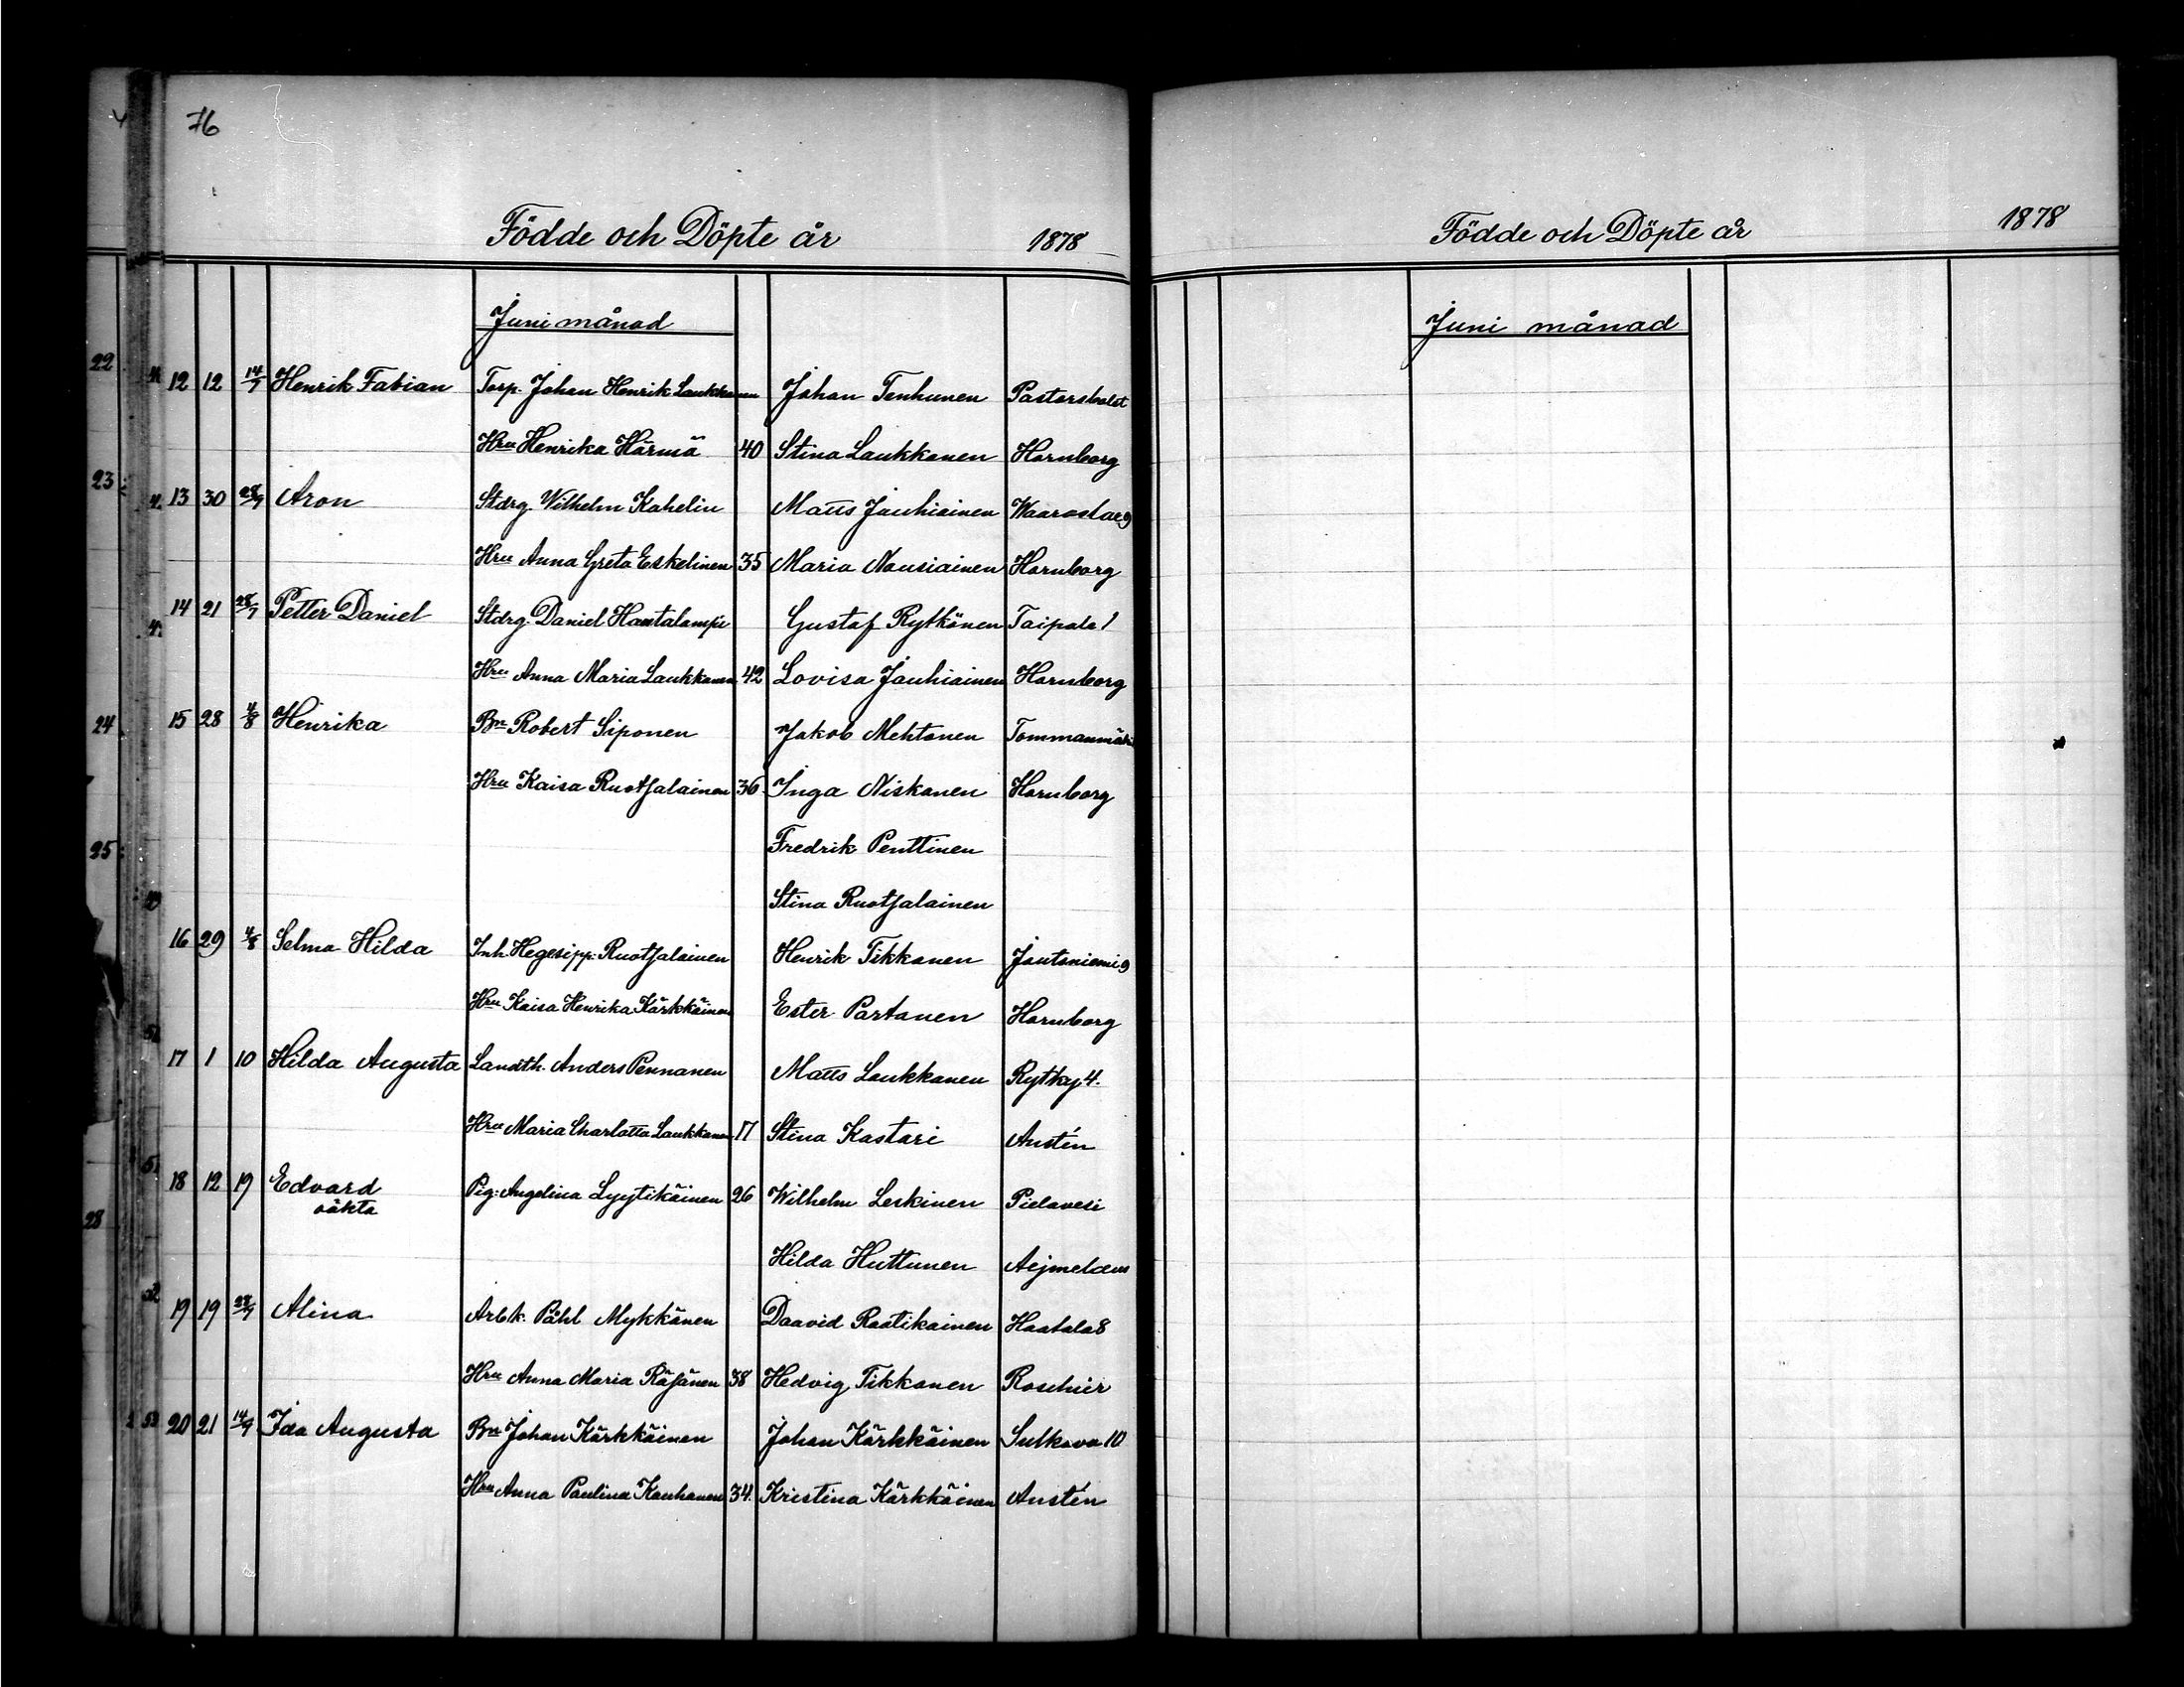 76
Födde och Döpte år 1878
Juni månad
12 12 14/7 Henrik Fabian Torp. Johan Henrik Laukkanen Johan Tenhunen
Hru Henrika Härmä 40 Stina Laukkanen Hornborg
13 30 28/9 Aron Stdrg. Wilhelm Kahelin Matts Jauhiainen
Hru Anna Greta Eskelinen 35 Maria Nousiainen Hornborg
14 21 28/7 Petter Daniel Stdrg. Daniel Hautalampi Gustaf Rytkönen Taipale 1
Hru Anna Maria Laukkanen 42 Lovisa Jauhiainen Hornborg
15 28 4/8 Henrika Bm Robert Siponen Jakob Mehtonen Tommanmäki
Hru Kaisa Ruotsalainen 36 Inga Niskanen Hornborg
Fredrik Penttinen
Stina Ruotsalainen
16 29 4/8 Selma Hilda Inh. Hegesipp. Ruotsalainen Henrik Tikkanen Joutoniemi 9
Hru Kaisa Henrika Kärkkäinen Ester Partanen Hornborg
17 1 10 Hilda Augusta Landth. Anders Pennanen Matts Laukkanen Rytky 4.
Hru Maria Charlotta Laukkanen 17 Stina Kastari Austén
18 12 19 Edvard Pig. Angelina Lyytikäinen 26 Wilhelm Leskinen Pielavesi
oäkta
Hilda Huttunen Aejmelæus
19 19 28/9 Alina Arbk. Påhl Mykkänen Daavid Raatikainen Haatala 8
Hru Anna Maria Räsänen 38 Hedvig Tikkanen Roschier
20 21 14/9 Ida Augusta Bm Johan Kärkkäinen Johan Kärkkäinen Sulkava 10
Hru Anna Paulina Kauhanen 34. Kristina Kärkkäinen Austén
Födde och Döpte år 1878
Juni månad